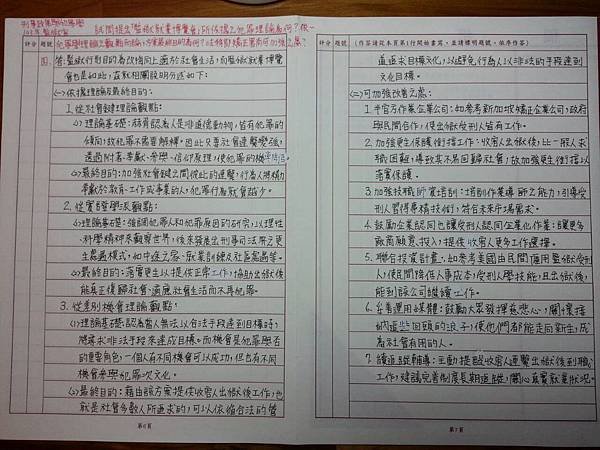 刑事政策與犯罪學
試問提出「監獄就業博覽會」所依據之犯罪理論為何？依
犯罪學理論之觀點而論,方案最終目的為何？法務部矯正署尚可加強之處？
評分 題號
四 答:監獄行刑目的為改悔向上適於社會生活,而監獄就業博覽
會也是如此,茲就相關說明分述如下:
(一)依據理論及最終目的:
1.從社會鍵理論觀點:
(1)理論基礎:赫胥認為人是非道德動物,皆有犯罪的
傾向,故犯罪不需要解釋。因此只要社會連繫愈強,
透過附著、奉獻、參與、信仰處理,使犯罪的機率降低。
(2)最終目的:加強社會鍵之間彼此的連繫,行為人將精力
奉獻於教育、工作或事業的人,犯罪行為就會越少。
2.從實證學派觀點:
(1)理論基礎:強調犯罪人和犯罪原因的研究,以理性
、科學精神來觀察世界,後來發展出刑事司法矯正更
生處遇模式,如中途之家、就業訓練及社區處遇等。
(2)最終目的:落實更生以提供正常工作,協助出獄後
能真正復歸社會、適應社會生活而不再犯罪。
3.從差別機會理論觀點:
(1)理論基礎:認為當人無法以合法手段達到目標時,
隨尋求非法手段來達成目標。而機會是犯罪與否
的重要角色,一個人有不同機會可以成功,但也有不同
機會參與犯罪次文化。
(2)最終目的:藉由該方案提供收容人出獄後工作,也
就是社會多數人所追求的,可以依循合法的管
第6頁
評分 題號 (作答請從本頁第1行開始書寫,並請標明題號,依序作答)
道追求目標文化,以避免行為人以非法的手段達到
文化目標。
(二)可加強改善之處:
1.半官方作業企業公司:如參考新加坡矯正企業公司,政府
與民間合作,使出獄受刑人皆有工作。
2.加強更生保護銜接工作:收容人出獄後,比一般人求
職困難,導致其不易回歸社會,故加強更生銜接以
落實保護。
3.加強技職師資培訓:培訓作業導師之能力,引導受
刑人習得專精技術,符合未來市場需求。
4.鼓勵企業認同也讓受刑人認同企業化作業:讓更多
廠商願意投入,提供收容人更多工作選擇。
5.聯合投資計畫:如參考美國由民間僱用監獄受刑
人,使民間降低人事成本,受刑人學技能,且出獄後,
能到該公司繼續工作。
6.妥善運用媒體:鼓勵大眾發揮慈悲心,關懷接
納這些回頭的浪子,使他們都能走向新生,成
為社會有用的人。
7.讓追蹤輔導:主動提醒收容人連繫出獄後到職
工作,建議完善制度長期追蹤,關心真實就業狀況。
第7頁